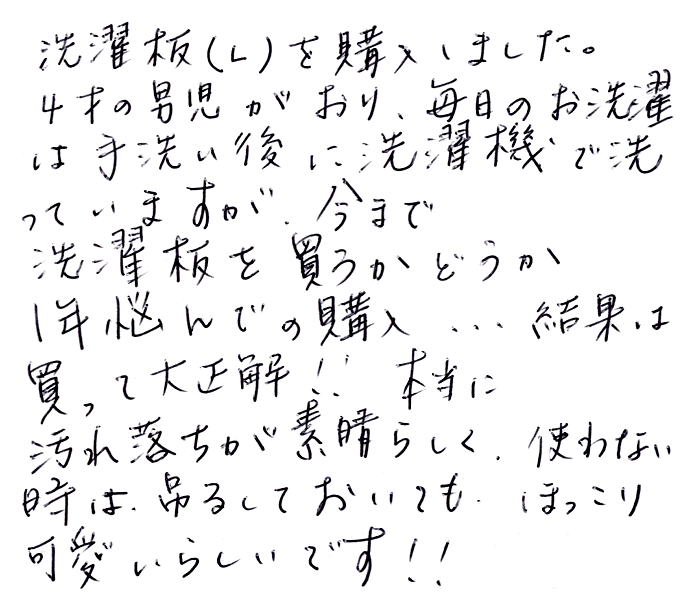 洗濯板(L)を購入しました。
4才の男児がおり、毎日のお洗濯
は手洗い後に洗濯機で洗
っていますが、今まで
洗濯板を買うかどうか
1年悩んでの購入...結果は
買って大正解!! 本当に
汚れ落ちが素晴らしく、使わない
時は、吊るしておいても、ほっこり
可愛いらしいです!!